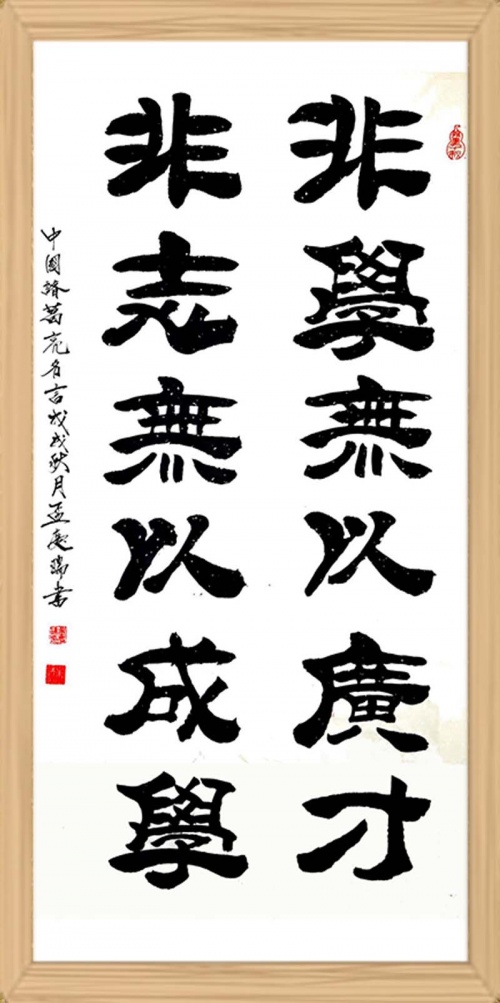 非學無以廣才
非志無以成學
中國諸葛亮名言戊戌秋月孟慶瑞書